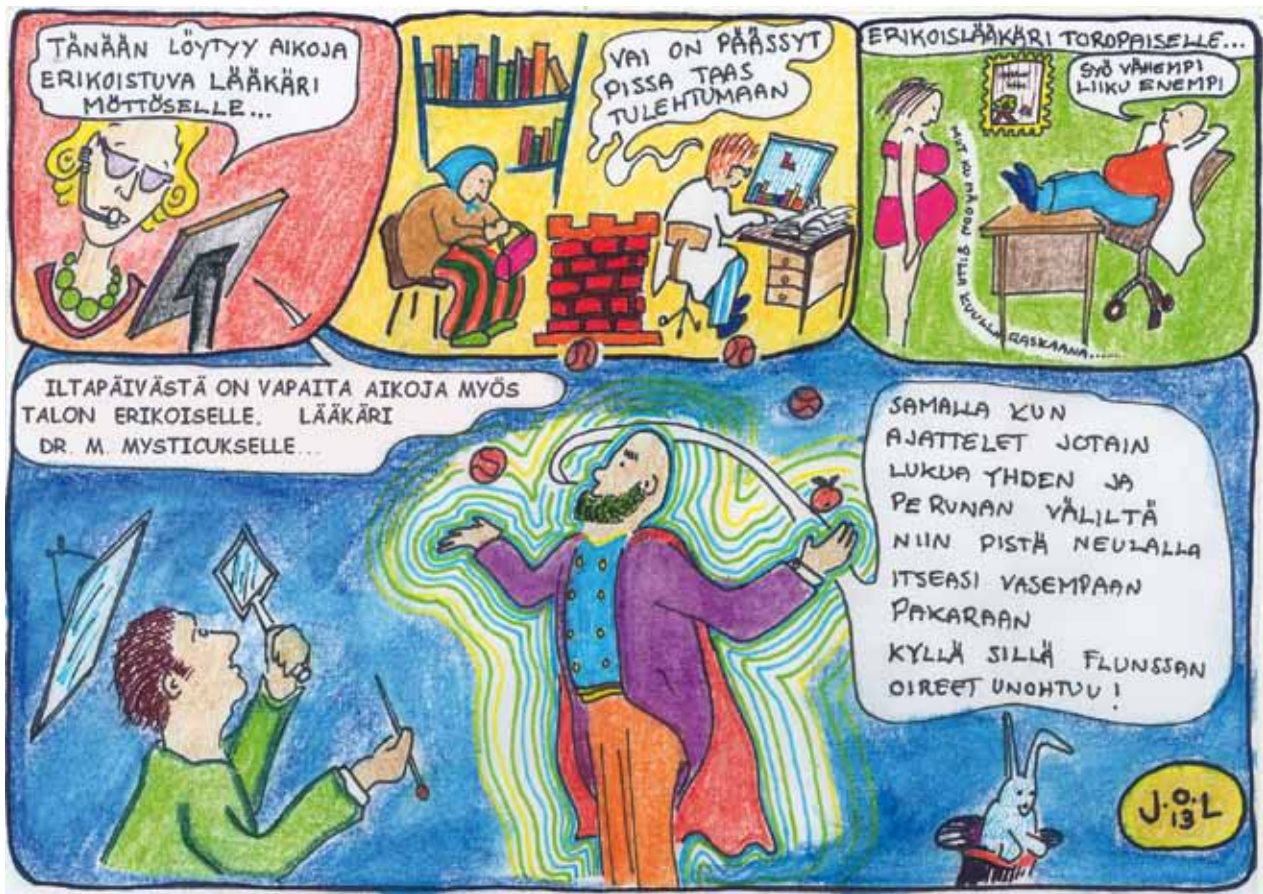 TÄNÄÄN LÖYTYY AIKOJA
ERIKOISTUVA LÄÄKÄRI
MÖTTÖSELLE...
VAI ON PÄÄSSYT
PISSA TAAS
TULEHTUMAAN
ERIKOISLÄÄKÄRI TOROPAISELLE...
SYÖ VÄHEMPI
LIIKU ENEMPI
MUT KU MÄ OON VIITTÄ KUULLA RASKAANA.....
ILTAPÄIVÄSTÄ ON VAPAITA AIKOJA MYÖS
TALON ERIKOISELLE. LÄÄKÄRI
DR. M. MYSTICUKSELLE...
SAMALLA KUN
AJATTELET JOTAIN
LUKUA YHDEN JA
PERUNAN VÄLILTÄ
NIIN PISTÄ NEULALLA
ITSEASI VASEMPAAN
PAKARAAN
KYLLÄ SILLÄ FLUNSSAN
OIREET UNOHTUU!
J.O.L
13